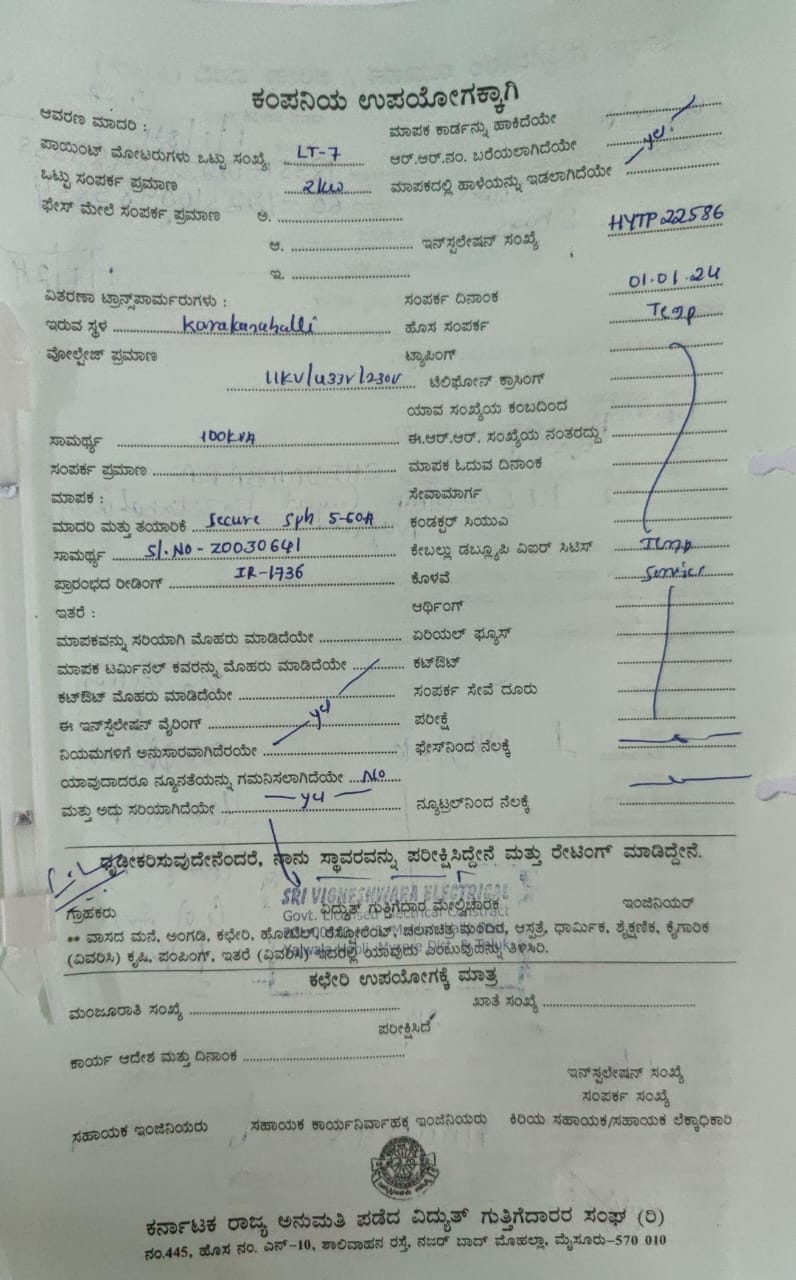 ಕಂಪನಿಯ ಉಪಯೋಗಕ್ಕಾಗಿ
ಆವರಣ ಮಾದರಿ : ಮಾಪಕ ಕಾರ್ಡನ್ನು ಹಾಕಿದೆಯೇ
ಪಾಯಿಂಟ್ ಮೋಟರುಗಳು ಒಟ್ಟು ಸಂಖ್ಯೆ LT-7 ಆರ್.ಆರ್.ನಂ. ಬರೆಯಲಾಗಿದೆಯೇ yes
ಒಟ್ಟು ಸಂಪರ್ಕ ಪ್ರಮಾಣ 2kw ಮಾಪಕದಲ್ಲಿ ಹಾಳೆಯನ್ನು ಇಡಲಾಗಿದೆಯೇ
ಫೇಸ್ ಮೇಲೆ ಸಂಪರ್ಕ ಪ್ರಮಾಣ ಅ.
ಆ. ಇನ್‌ಸ್ಟಲೇಷನ್ ಸಂಖ್ಯೆ HYTP22586
ಇ.
ವಿತರಣಾ ಟ್ರಾನ್ಸ್‌ಪಾರ್ಮರುಗಳು : ಸಂಪರ್ಕ ದಿನಾಂಕ 01.01.24
ಇರುವ ಸ್ಥಳ Karakanahalli ಹೊಸ ಸಂಪರ್ಕ Temp
ವೋಲ್ಟೇಜ್ ಪ್ರಮಾಣ ಟ್ಯಾಪಿಂಗ್
11KV/433V/230V ಟೆಲಿಫೋನ್ ಕ್ರಾಸಿಂಗ್
ಯಾವ ಸಂಖ್ಯೆಯ ಕಂಬದಿಂದ
ಸಾಮರ್ಥ್ಯ 100KVA ಈ.ಆರ್.ಆರ್. ಸಂಖ್ಯೆಯ ನಂತರದ್ದು
ಸಂಪರ್ಕ ಪ್ರಮಾಣ ಮಾಪಕ ಓದುವ ದಿನಾಂಕ
ಮಾಪಕ : ಸೇವಾಮಾರ್ಗ
ಮಾದರಿ ಮತ್ತು ತಯಾರಿಕೆ Secure Sph 5-60A ಕಂಡಕ್ಟರ್ ಸಿಯುವಿ
ಸಾಮರ್ಥ್ಯ Sl.No - Z0030641 ಕೇಬಲ್ಲು ಡಬ್ಲ್ಯೂಪಿ ವಿಐರ್ ಸಿಟಿಸ್ Temp
ಪ್ರಾರಂಭದ ರೀಡಿಂಗ್ IR-1736 ಕೊಳವೆ Service
ಇತರೆ : ಆರ್ಥಿಂಗ್
ಮಾಪಕವನ್ನು ಸರಿಯಾಗಿ ಮೊಹರು ಮಾಡಿದೆಯೇ ಏರಿಯಲ್ ಫ್ಯೂಸ್
ಮಾಪಕ ಟರ್ಮಿನಲ್ ಕವರನ್ನು ಮೊಹರು ಮಾಡಿದೆಯೇ ಕಟ್‌ಔಟ್
ಕಟ್‌ಔಟ್ ಮೊಹರು ಮಾಡಿದೆಯೇ ಸಂಪರ್ಕ ಸೇವೆ ದೂರು
ಈ ಇನ್‌ಸ್ಟಲೇಷನ್ ವೈರಿಂಗ್ yes ಪರೀಕ್ಷೆ
ನಿಯಮಗಳಿಗೆ ಅನುಸಾರವಾಗಿದೆರಯೇ ಫೇಸ್‌ನಿಂದ ನೆಲಕ್ಕೆ
ಯಾವುದಾದರೂ ನ್ಯೂನತೆಯನ್ನು ಗಮನಿಸಲಾಗಿದೆಯೇ No
ಮತ್ತು ಅದು ಸರಿಯಾಗಿದೆಯೇ yes ನ್ಯೂಟ್ರಲ್‌ನಿಂದ ನೆಲಕ್ಕೆ
ದೃಢೀಕರಿಸುವುದೇನೆಂದರೆ, ನಾನು ಸ್ಥಾವರವನ್ನು ಪರೀಕ್ಷಿಸಿದ್ದೇನೆ ಮತ್ತು ರೇಟಿಂಗ್ ಮಾಡಿದ್ದೇನೆ.
SRI VIGNESHWARA ELECTRICAL
ಗ್ರಾಹಕರು ವಿದ್ಯುತ್ ಗುತ್ತಿಗೆದಾರ ಮೇಲ್ವಿಚಾರಕ ಇಂಜಿನಿಯರ್
Govt. Licensed Electrical
** ವಾಸದ ಮನೆ, ಅಂಗಡಿ, ಕಛೇರಿ, ಹೋಟೆಲ್, ರೆಸ್ಟೋರೆಂಟ್, ಚಲನಚಿತ್ರ ಮಂದಿರ, ಆಸ್ಪತ್ರೆ, ಧಾರ್ಮಿಕ, ಶೈಕ್ಷಣಿಕ, ಕೈಗಾರಿಕೆ
(ವಿವರಿಸಿ) ಕೃಷಿ, ಪಂಪಿಂಗ್, ಇತರೆ (ವಿವರಿಸಿ) ಇದರಲ್ಲಿ ಯಾವುದು ಎಂಬುವುದನ್ನು ತಿಳಿಸಿರಿ.
ಕಛೇರಿ ಉಪಯೋಗಕ್ಕೆ ಮಾತ್ರ
ಮಂಜೂರಾತಿ ಸಂಖ್ಯೆ ಖಾತೆ ಸಂಖ್ಯೆ
ಪರೀಕ್ಷಿಸಿದೆ
ಕಾರ್ಯ ಆದೇಶ ಮತ್ತು ದಿನಾಂಕ
ಇನ್‌ಸ್ಟಲೇಷನ್ ಸಂಖ್ಯೆ
ಸಂಪರ್ಕ ಸಂಖ್ಯೆ
ಸಹಾಯಕ ಇಂಜಿನಿಯರು ಸಹಾಯಕ ಕಾರ್ಯನಿರ್ವಾಹಕ ಇಂಜಿನಿಯರು ಕಿರಿಯ ಸಹಾಯಕ/ಸಹಾಯಕ ಲೆಕ್ಕಾಧಿಕಾರಿ
ಕರ್ನಾಟಕ ರಾಜ್ಯ ಅನುಮತಿ ಪಡೆದ ವಿದ್ಯುತ್ ಗುತ್ತಿಗೆದಾರರ ಸಂಘ (ರಿ)
ನಂ.445, ಹೊಸ ನಂ. ಎನ್-10, ಶಾಲಿವಾಹನ ರಸ್ತೆ, ನಜರ್ ಬಾದ್ ಮೊಹಲ್ಲಾ, ಮೈಸೂರು-570 010